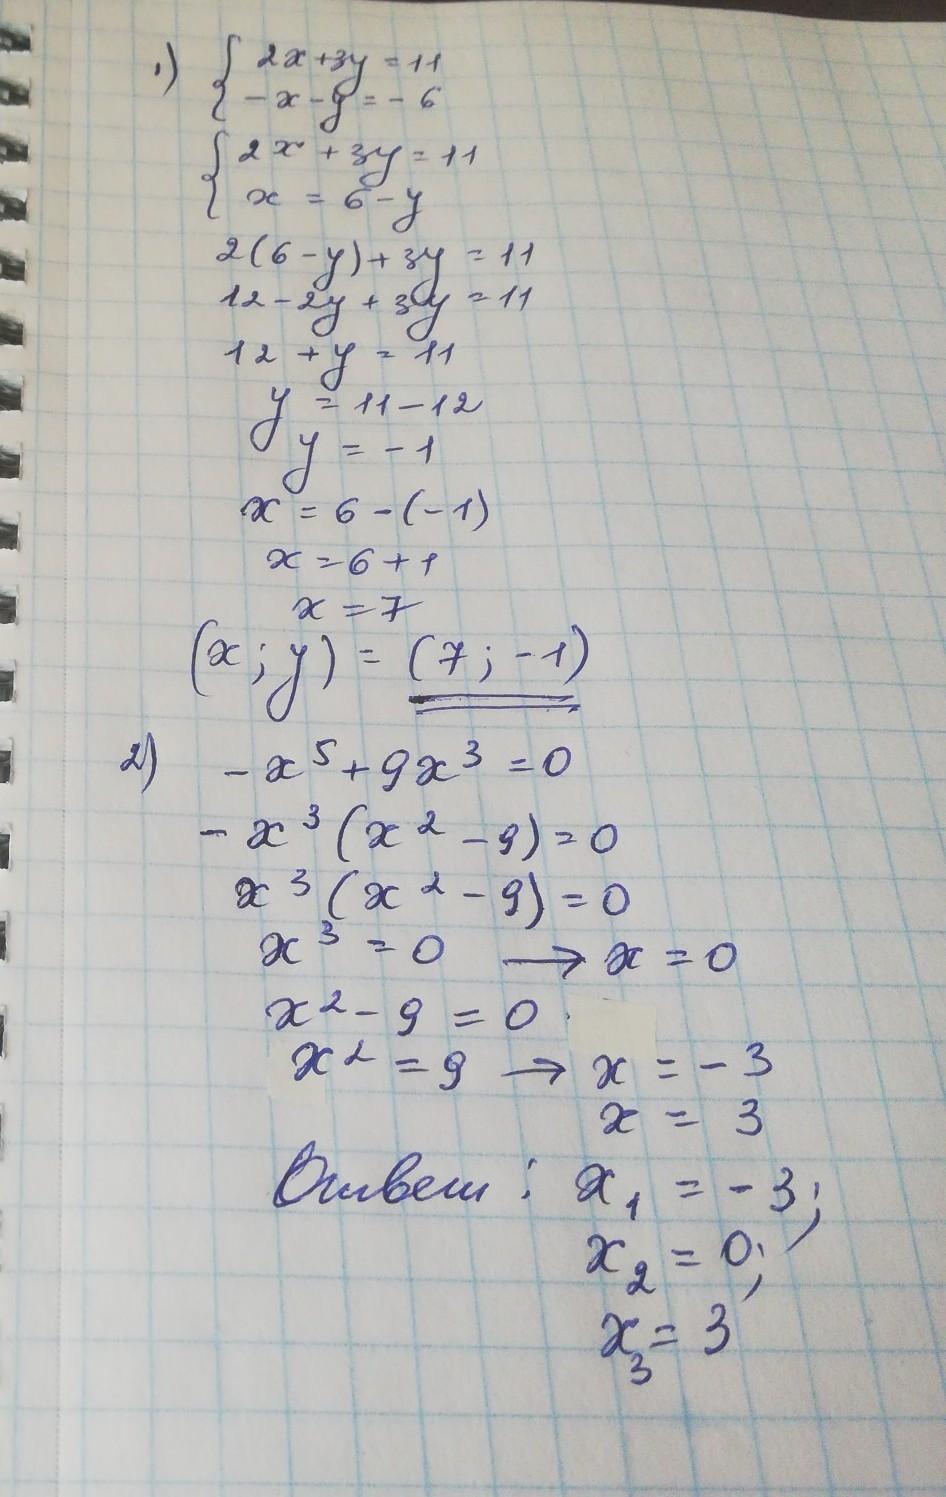 1) { 2x+3y=11
-x-y=-6
{ 2x+3y=11
x=6-y
2(6-y)+3y=11
12-2y+3y=11
12+y=11
y=11-12
y=-1
x=6-(-1)
x=6+1
x=7
(x;y)=(7;-1)
2) -x⁵+9x³=0
-x³(x²-9)=0
x³(x²-9)=0
x³=0 → x=0
x²-9=0
x²=9 → x=-3
x=3
Ответ: x₁=-3;
x₂=0;
x₃=3